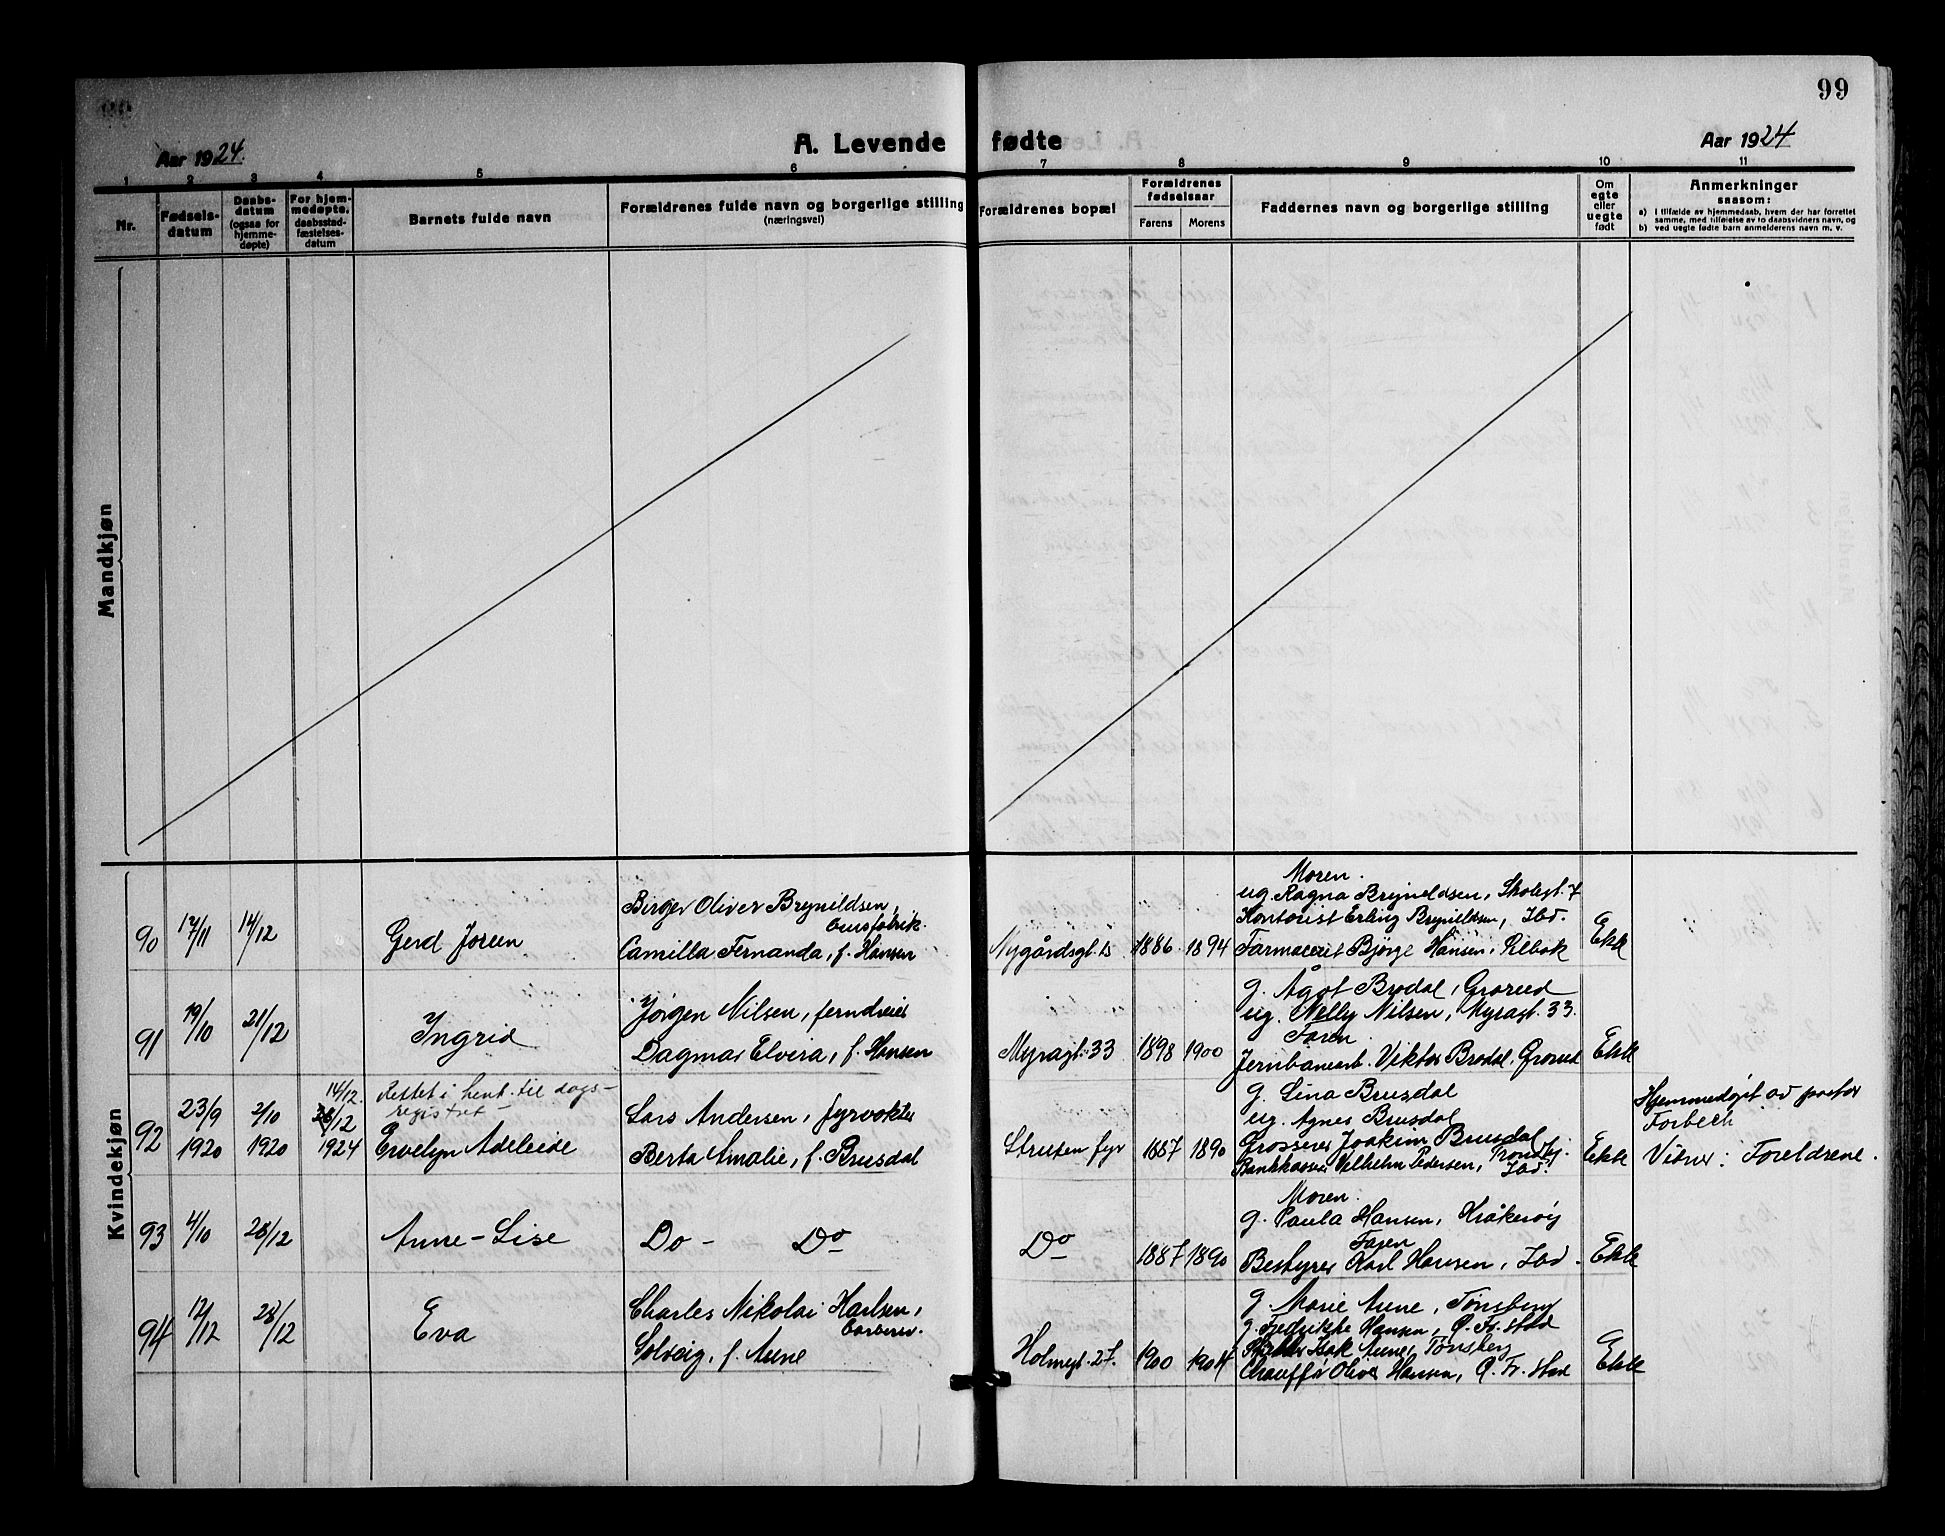 99
Aar 1924.
A. Levende fødte
Aar 1924
1 2 3 4 5 6 7 8 9 10 11
Nr.
Fødsels-
datum
Daabs-
datum
(ogsaa for
hjemme-
døpte)
For hjem-
medøpte,
daabsstad-
fæstelses-
datum
Barnets fulde navn
Forældrenes fulde navn og borgerlige stilling
(næringsvei)
Forældrenes bopæl
Forældrenes
fødselsaar
Farens Morens
Faddernes navn og borgerlige stilling
Om
egte
eller
uegte
født
Anmerkninger
saasom:
a) i tilfælde av hjemmedaab, hvem der har forrettet
samme, med tilføielse av to daabsvidners navn, og
b) ved uegte fødte barn anmelderens navn m. v.
Mandkjøn
Kvindekjøn
90
17/11
14/12
Gerd Joreen
Birger Oliver Brynildsen,
Camilla Fernanda, f. Hansen
Nygårdsgt. 15
1886 1894
Moren.
ug. Ragna Brynildsen, Skolegt. 7
Kontorist Erling Brynildsen, Ibid.
Farmaceut Bjørge Hansen, Rebok
Ekte
91
19/10
21/12
Ingrid
Jørgen Nilsen,
Dagmar Elvira, f. Hansen
Myragt. 33
1898 1900
g. Ågot Brodal, Grorud
ug. Nelly Nilsen, Myragt. 33.
Faren.
Jernbanearb. Viktor Brodal, Grorud
Ekte
92
23/9
1920
2/10
1920
14/12.
28/12
1924
Rettet i hent. til dags-
registret -
Evelyn Adeleide
Lars Andersen, fyrvokter
Berta Amalie, f. Brusdal
Struten fyr
1887 1890
g. Lina Brusdal
ug. Agnes Brusdal
Grosserer Joakim Brusdal
Bankkasserer Vilhelm Pedersen, Trondhj.
Ibid.
Ekte
Hjemmedøpt av pastor
Forbech
Vitner: Foreldrene.
93
4/10
28/12
Anne-Lise
Do - Do
Do
1887 1890
Moren.
g. Paula Hansen, Kråkerøy
Faren
Bestyrer Karl Hansen, Ibid.
Ekte
94
12/12
28/12
Eva
Charles Nikolai Karlsen,
Barberer.
Solveig, f. Aune
Holmegt. 27.
1900 1904
g. Marie Aune, Tønsberg
g. Fredrikke Hansen, G. Fr.stad
Isak Aune, Tønsberg
Chauffør Oliver Hansen, G. Fr. stad
Ekte